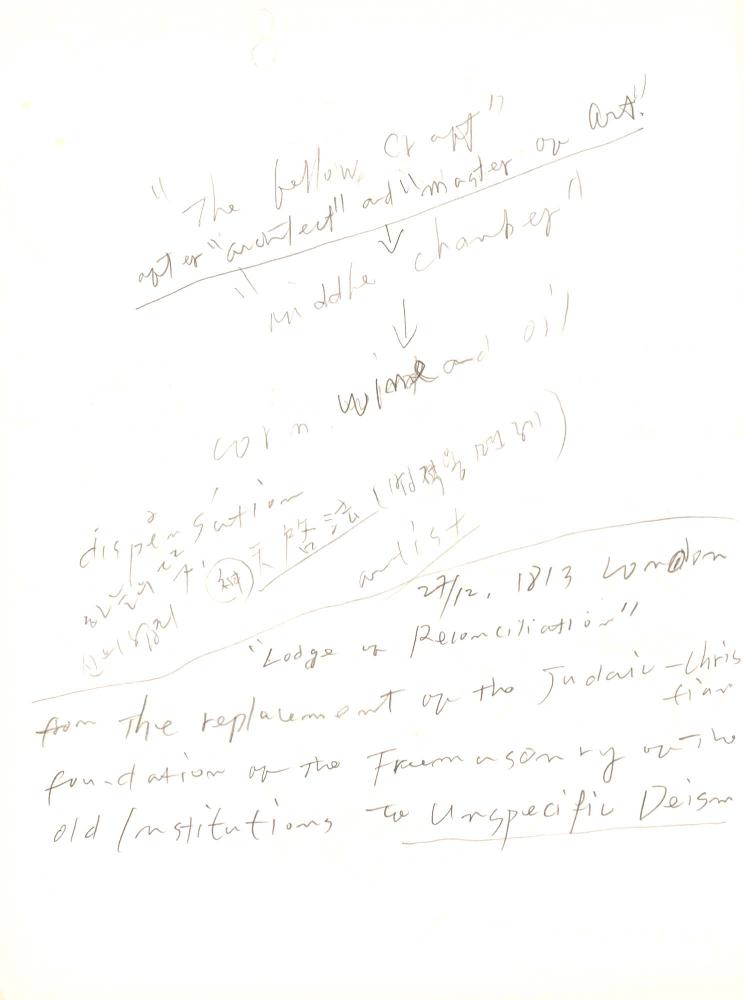 "The fellow Craft"
after "architect" and "master of Art."
↓
"middle chamber"
↓
corn. wine and oil
dispensation
神 天啓法
artist
27/12, 1813 London
"Lodge of Reconciliation"
from The replacement of the Judaic-Chris
tian
foundation of the Freemasonry of The
old Institutions to Unspecific Deism